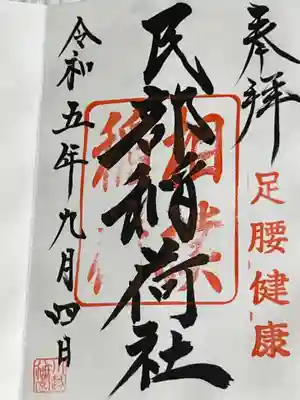 奉拝
足腰健康
民部稲荷社
令和五年九月四日